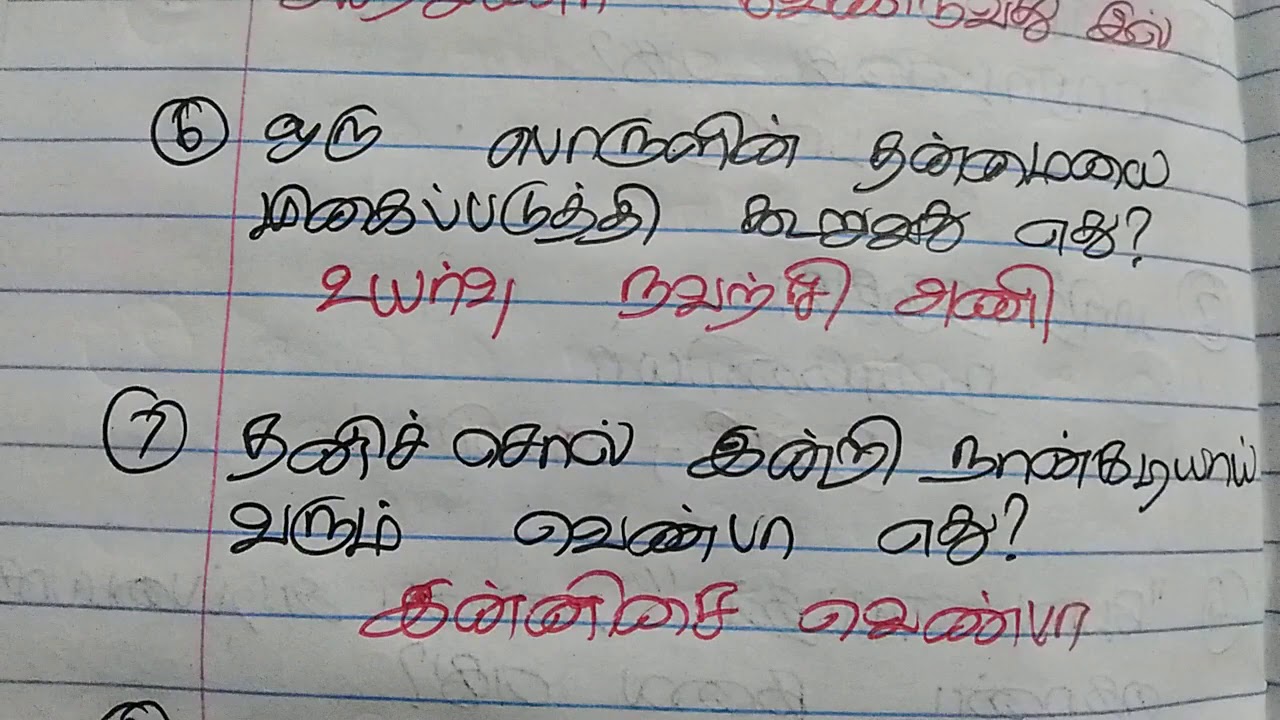 வெண் இல்
6 ஒரு பொருளின் தன்மையை
மிகைப்படுத்தி கூறுவது எது?
உயர்வு நவற்சி அணி
7 தனிச் சொல் இன்றி நான்கடியாய்
வரும் வெண்பா எது?
இன்னிசை வெண்பா